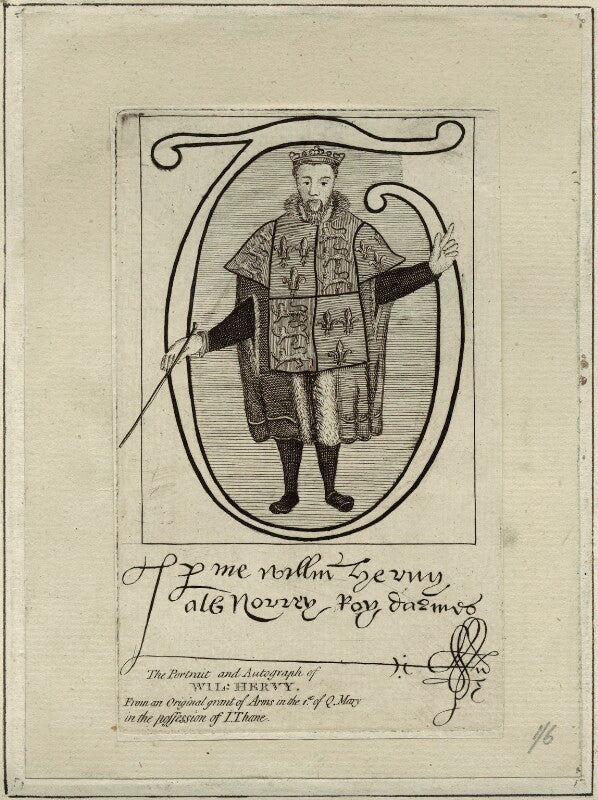 p me willm Hervy
als Norrey Roy darmes
The Portrait and Autograph of
WIL: HERVY.
From an Original grant of Arms in the 1st. of Q. Mary
in the possession of I. Thane.
76